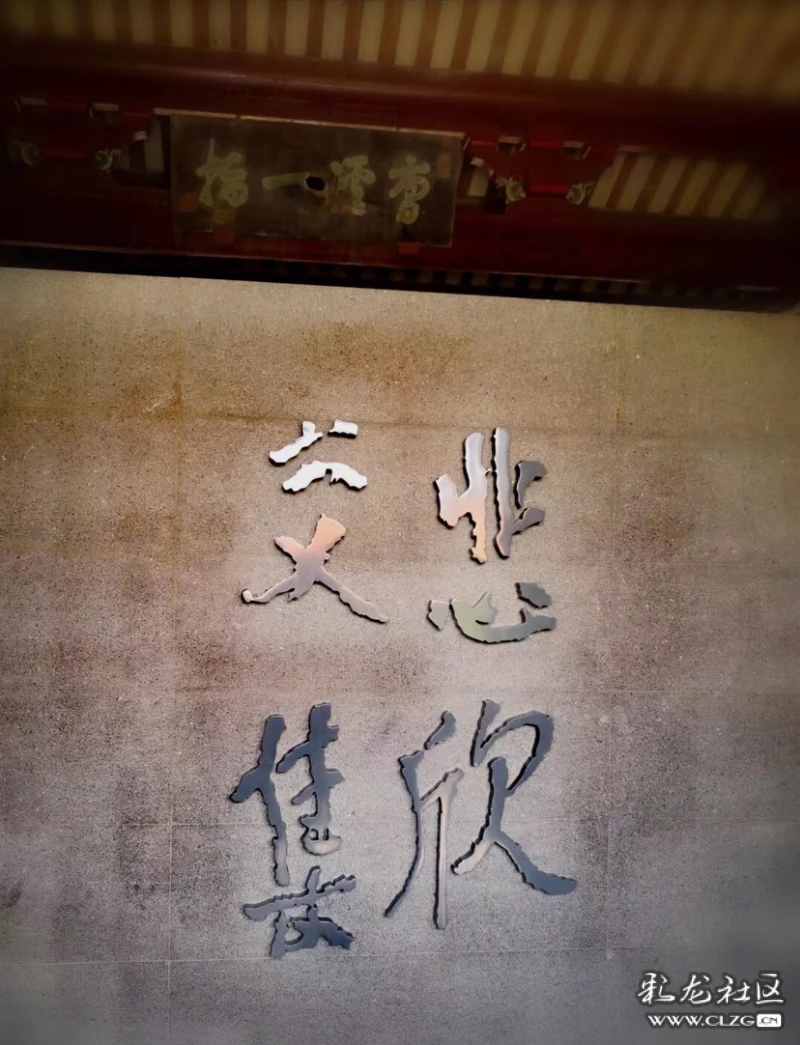 悲欣
交集
彩龙社区
WWW.CLZG.CN